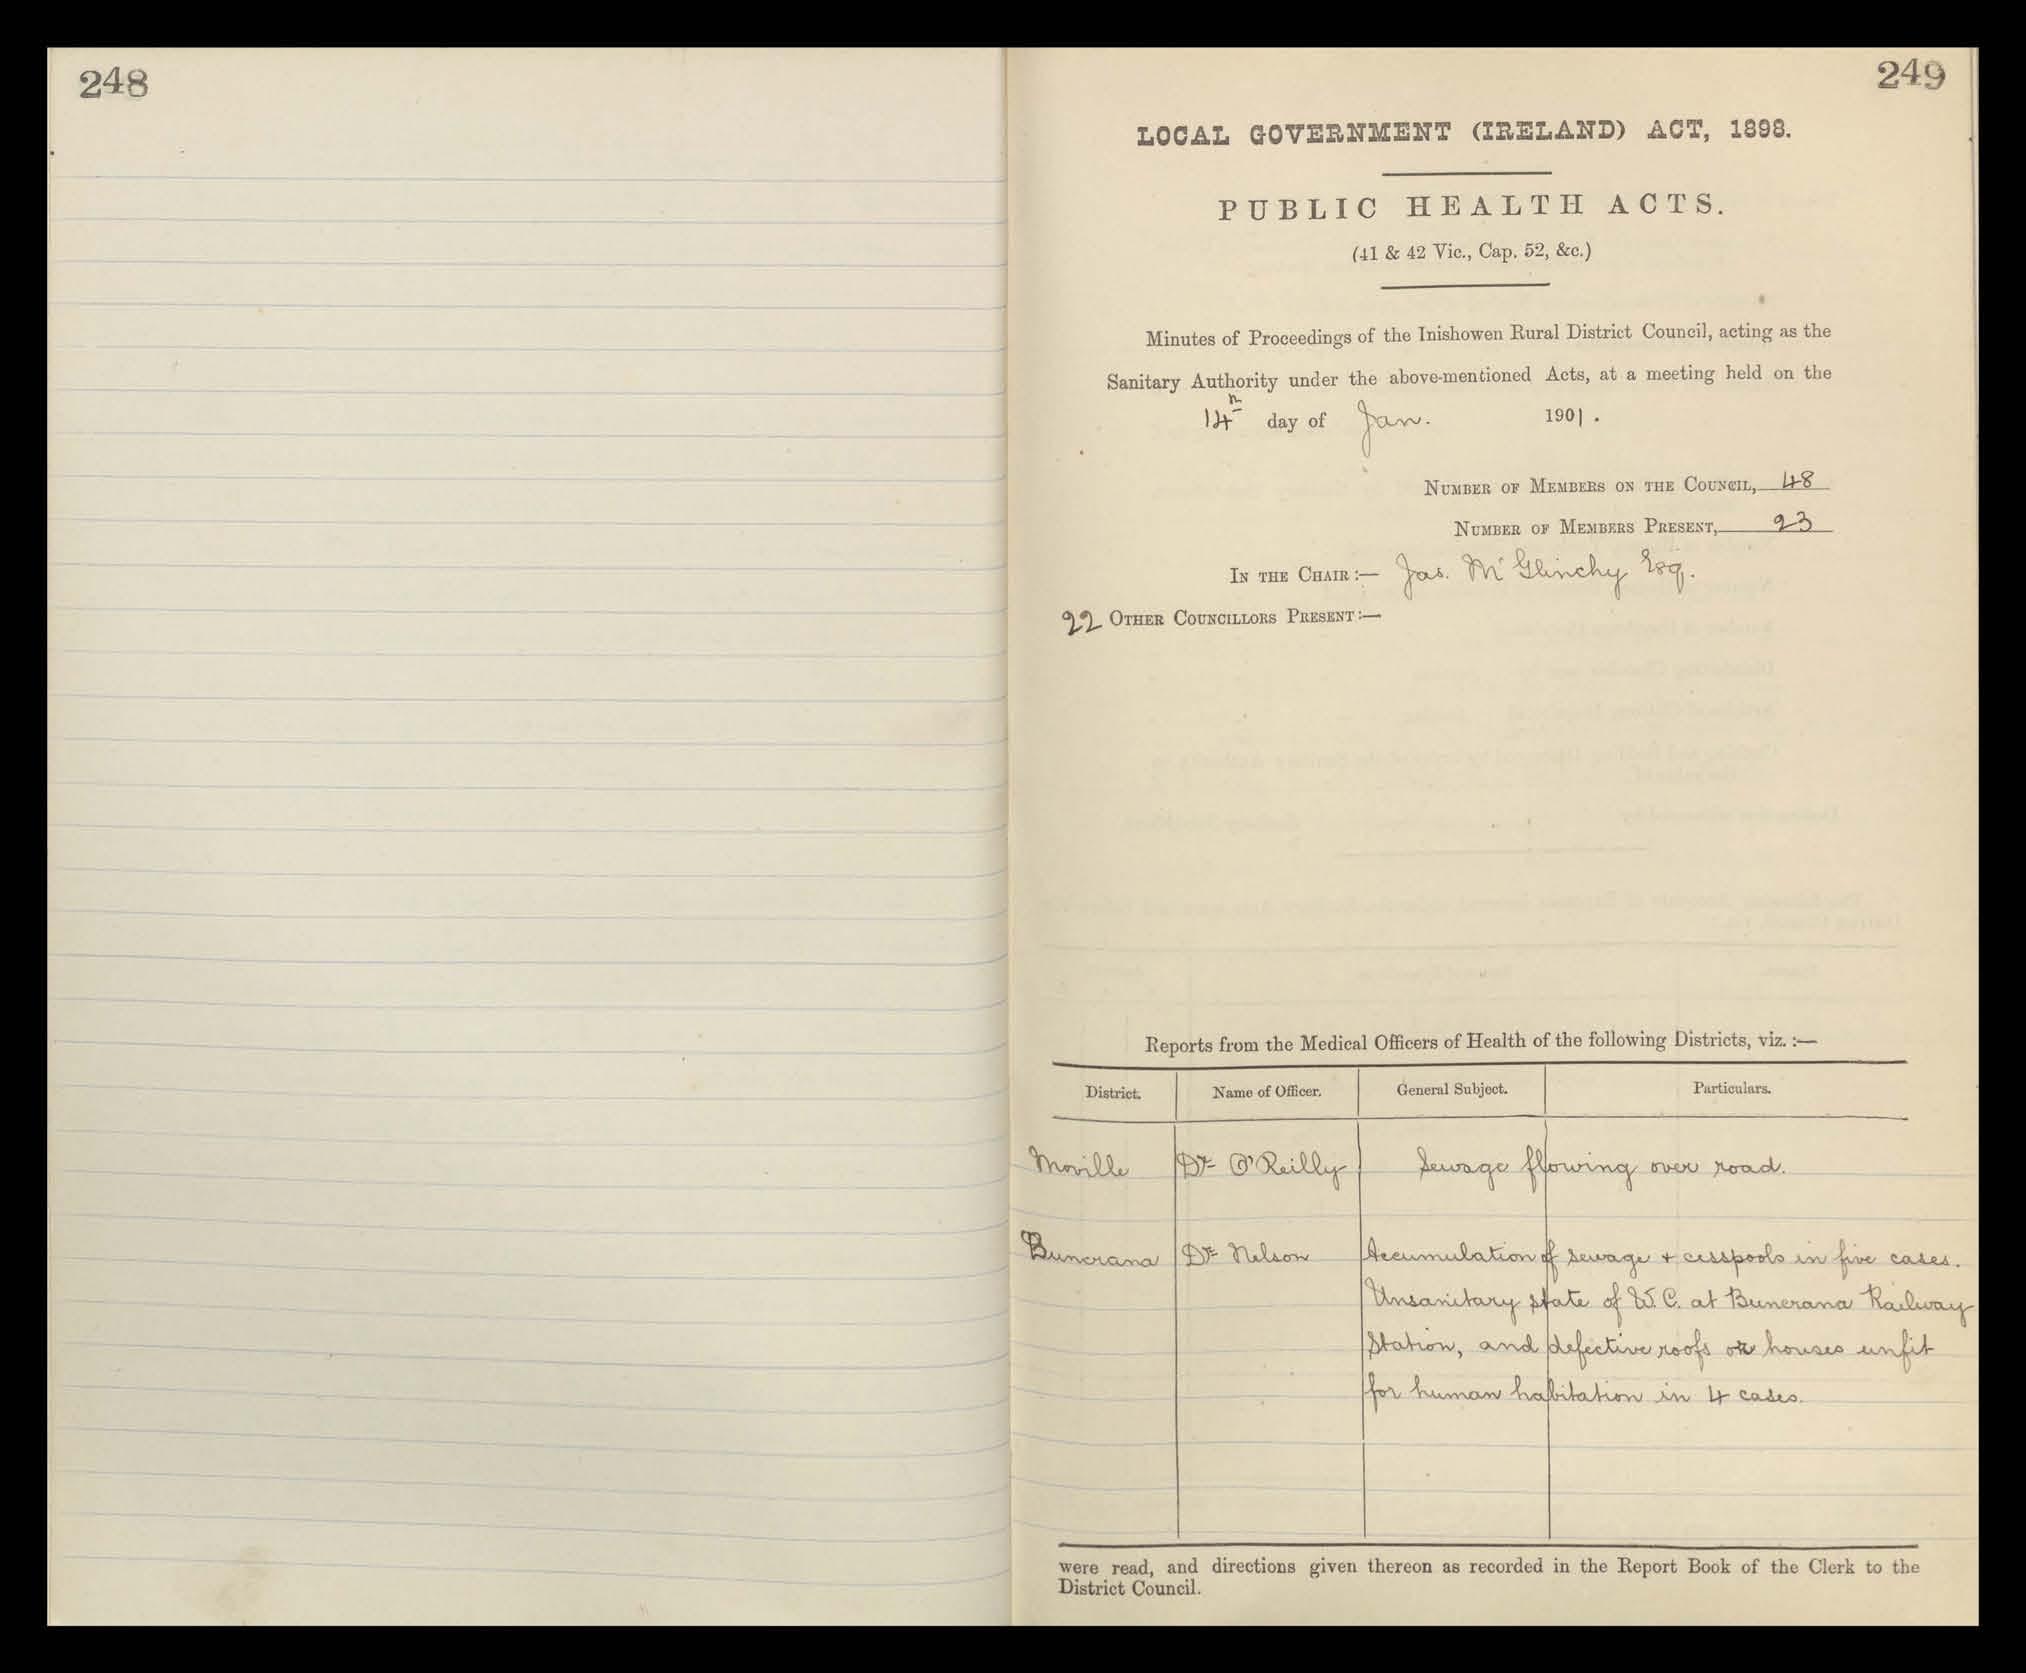 248
249
LOCAL GOVERNMENT (IRELAND) ACT, 1898.
PUBLIC HEALTH ACTS.
(41 & 42 Vic., Cap. 52, &c.)
Minutes of Proceedings of the Inishowen Rural District Council, acting as the
Sanitary Authority under the above-mentioned Acts, at a meeting held on the
14th day of Jan. 1901.
NUMBER OF MEMBERS ON THE COUNCIL, 48
NUMBER OF MEMBERS PRESENT, 23
IN THE CHAIR :— Jas. McGlinchy Esq.
22 OTHER COUNCILLORS PRESENT :—
Reports from the Medical Officers of Health of the following Districts, viz. :—
District. Name of Officer. General Subject. Particulars.
Moville Dr O'Reilly Sewage flowing over road.
Buncrana Dr Nelson Accumulation of sewage + cesspools in five cases.
Unsanitary state of W.C. at Buncrana Railway
Station, and defective roofs or houses unfit
for human habitation in 4 cases.
were read, and directions given thereon as recorded in the Report Book of the Clerk to the
District Council.